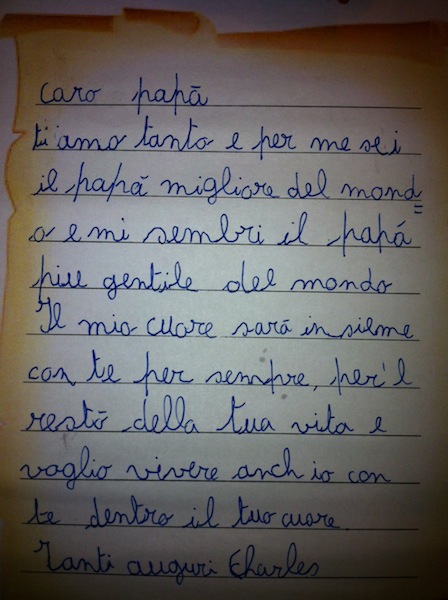 Caro papā
ti amo tanto e per me sei
il papā migliore del mond=
o e mi sembri il papá
piu gentile del mondo
Il mio cuore sarā insieme
con te per sempre, per'l
restō della tua vita e
voglio vivere anch io con
te dentro il tuo cuore.
Tanti auguri Charles